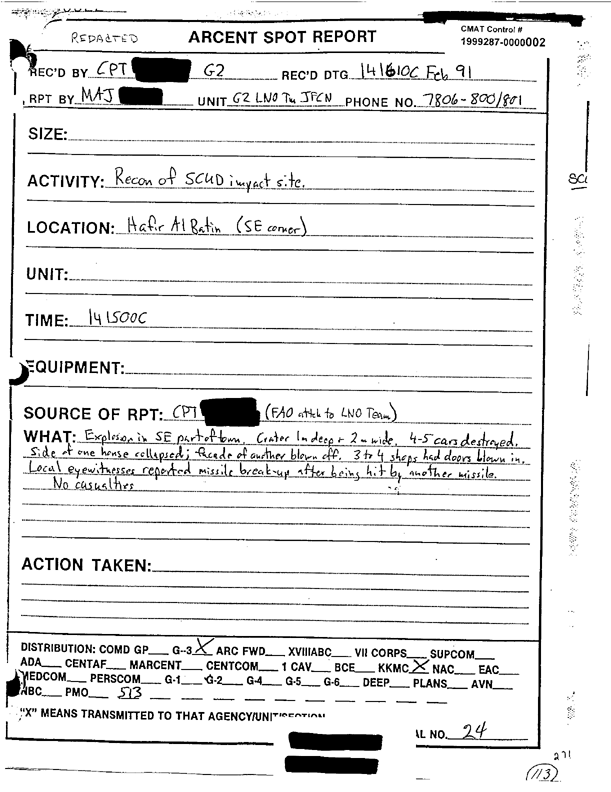 REDACTED ARCENT SPOT REPORT
CMAT Control #
1999287-0000002
REC'D BY CPT G2 REC'D DTG 141610C Feb 91
RPT BY MAJ UNIT G2 LNO Tm JFCN PHONE NO. 7806-800/801
SIZE:
ACTIVITY: Recon of SCUD impact site.
LOCATION: Hafir Al Batin (SE corner)
UNIT:
TIME: 141500C
EQUIPMENT:
SOURCE OF RPT: CPT (FAO attch to LNO Team)
WHAT: Explosion in SE part of town. Crater 1m deep + 2m wide. 4-5 cars destroyed.
Side of one house collapsed; facade of another blown off. 3 to 4 shops had doors blown in.
Local eyewitnesses reported missile break-up after being hit by another missile.
No casualties
ACTION TAKEN:
DISTRIBUTION: COMD GP___ G-3 X ARC FWD___ XVIIIABC___ VII CORPS___ SUPCOM___
ADA___ CENTAF___ MARCENT___ CENTCOM___ 1 CAV___ BCE___ KKMC X NAC___ EAC___
MEDCOM___ PERSCOM___ G-1___ G-2___ G-4___ G-5___ G-6___ DEEP___ PLANS___ AVN___
NBC___ PMO___ 513
"X" MEANS TRANSMITTED TO THAT AGENCY/UNIT/SECTION
AL NO. 24
271
(113)